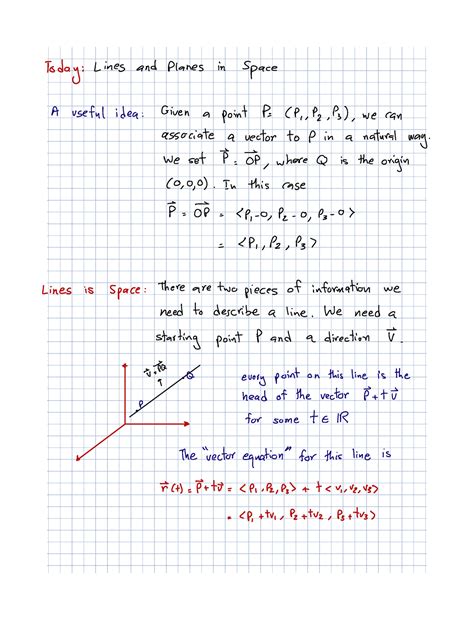 Today: Lines and Planes in Space
A useful idea: Given a point P= (P₁, P₂, P₃), we can
associate a vector to P in a natural way.
We set P⃗ = OP⃗, where O is the origin
(0,0,0). In this case
P⃗ = OP⃗ = <P₁-0, P₂-0, P₃-0>
= <P₁, P₂, P₃>
Lines is Space: There are two pieces of information we
need to describe a line. We need a
starting point P and a direction V⃗.
V⃗ = PQ⃗
Q
P
every point on this line is the
head of the vector P⃗+tV⃗
for some t∈ℝ
The "vector equation" for this line is
r⃗(t) = P⃗+tV⃗ = <P₁, P₂, P₃> + t<v₁, v₂, v₃>
= <P₁+tv₁, P₂+tv₂, P₃+tv₃>